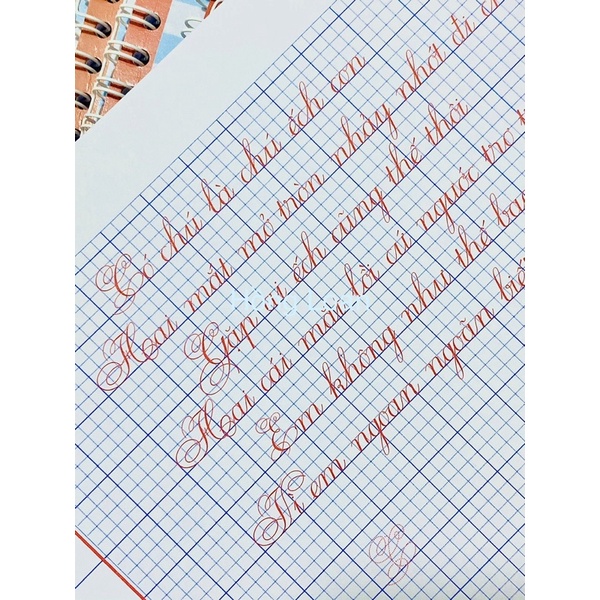 Có chú là chú ếch con
Hai mắt mở tròn nhảy nhót đi
Gặp ai ếch cũng thế thôi
Hai cái mắt lồi cứ ngước trơ
Em không như thế
Vì em ngoan ngoãn